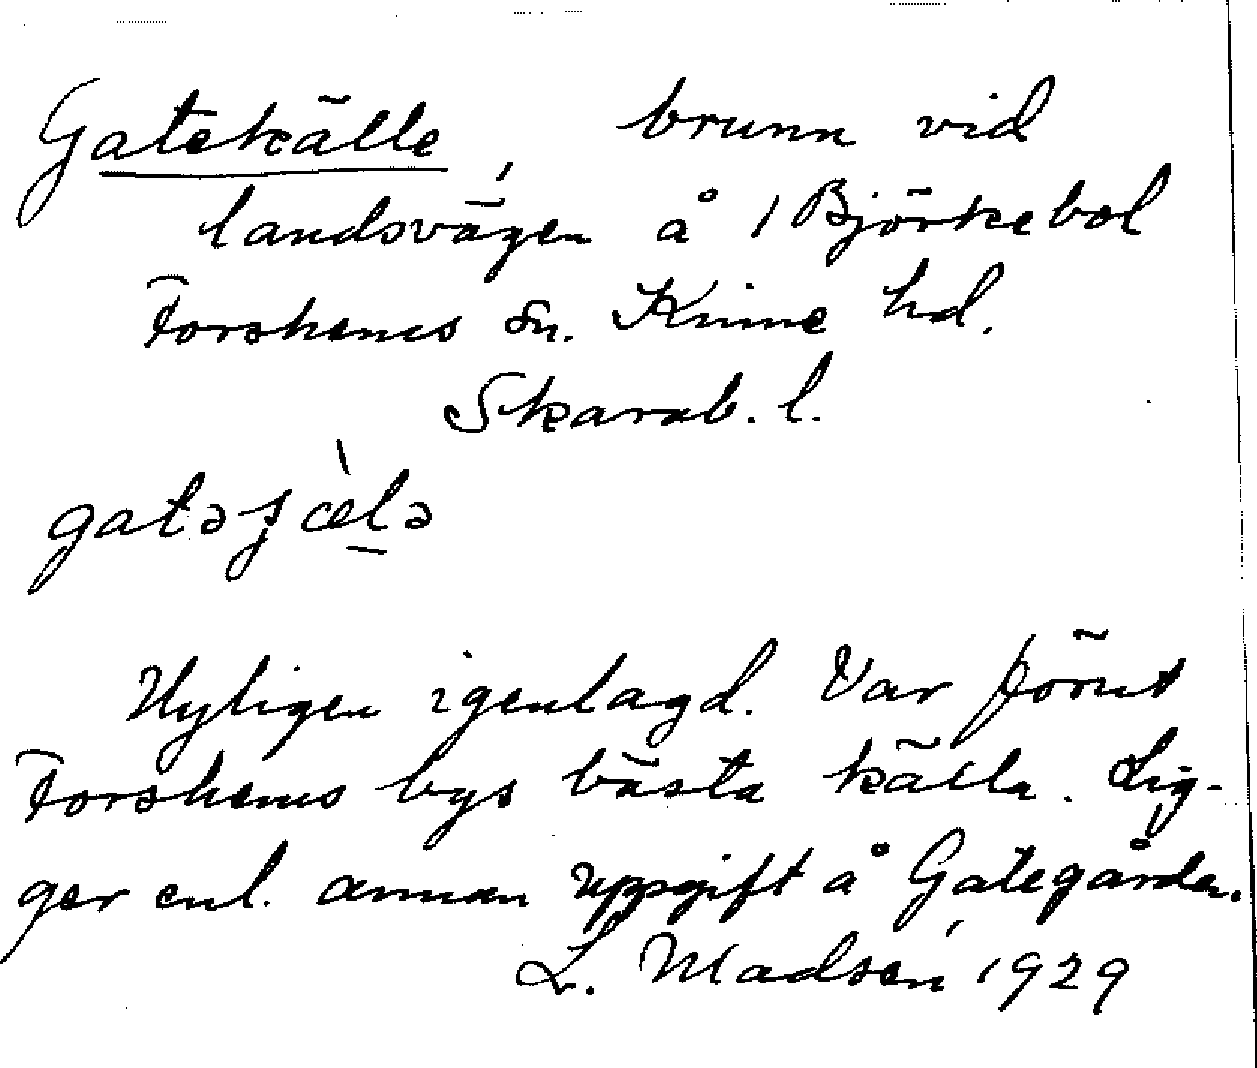 Gatekälle, brunn vid
landsvägen å 1 Björkebol
Forshems sn. Kinne hd.
Skarab. l.
gatəʃæ̀lə
Nyligen igenlagd. Var förrut
Forshems bys bästa källa. Lig-
ger enl. annan uppgift å Gategården.
L. Madsén 1929